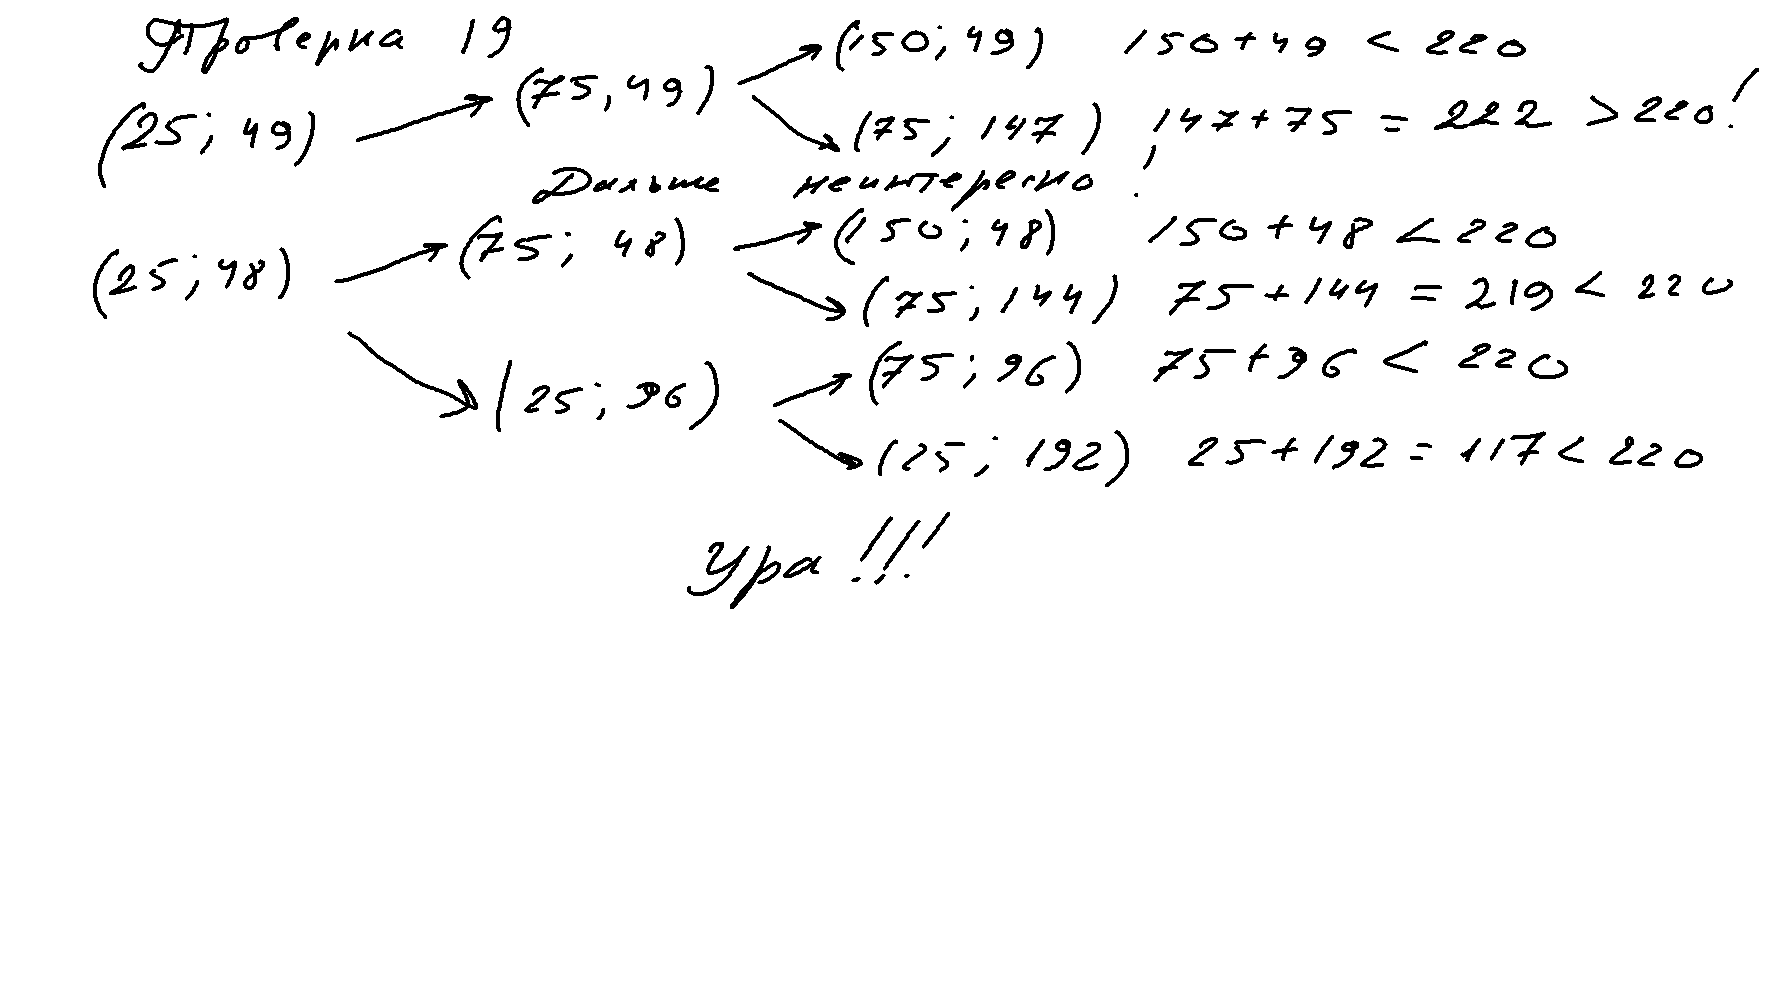 Проверка 19
(150; 49) 150+49 < 220
(25; 49) → (75, 49)
(75; 147) 147+75 = 222 > 220!
Дальше неинтересно!
(150; 48) 150+48 < 220
(25; 48) → (75; 48)
(75; 144) 75+144 = 219 < 220
(75; 96) 75+96 < 220
(25; 96)
(25; 192) 25+192 = 117 < 220
Ура!!!